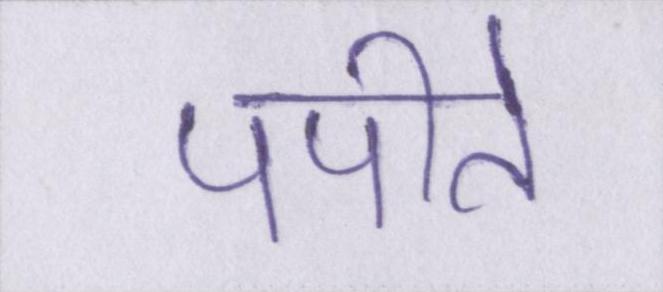 पपीते